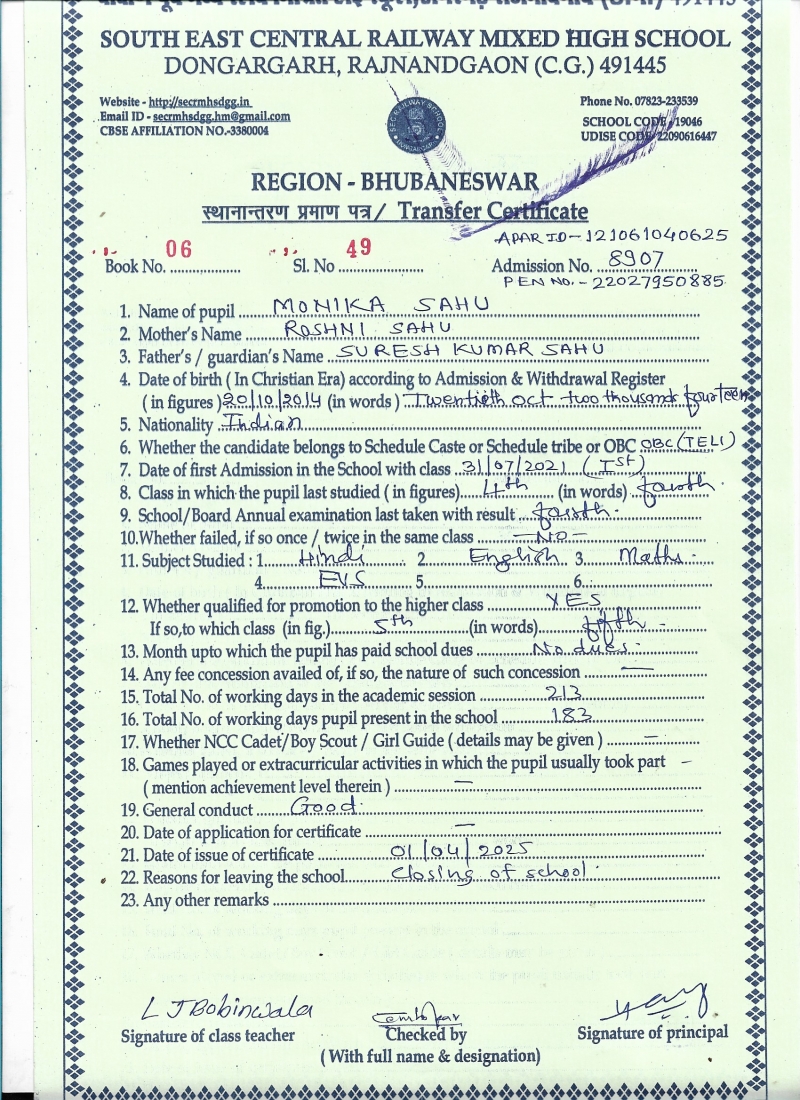 SOUTH EAST CENTRAL RAILWAY MIXED HIGH SCHOOL
DONGARGARH, RAJNANDGAON (C.G.) 491445
Website - http://secrmhsdgg.in
Email ID - secrmhsdgg.hm@gmail.com
CBSE AFFILIATION NO.-3380004
Phone No. 07823-233539
SCHOOL CODE - 19046
UDISE CODE 22090616447
REGION - BHUBANESWAR
स्थानान्तरण प्रमाण पत्र / Transfer Certificate
APAR ID - 121061040625
Book No. 06 Sl. No 49 Admission No. 8907
PEN NO. - 22027950885
1. Name of pupil MONIKA SAHU
2. Mother's Name ROSHNI SAHU
3. Father's / guardian's Name SURESH KUMAR SAHU
4. Date of birth ( In Christian Era) according to Admission & Withdrawal Register
( in figures ) 20/10/2014 (in words ) Twentieth oct two thousand fourteen
5. Nationality Indian
6. Whether the candidate belongs to Schedule Caste or Schedule tribe or OBC OBC (TELI)
7. Date of first Admission in the School with class 31/07/2021 (Ist)
8. Class in which the pupil last studied ( in figures) 4th (in words) fourth
9. School/Board Annual examination last taken with result fourth.
10.Whether failed, if so once / twice in the same class - NO -
11. Subject Studied : 1. Hindi 2. English 3. Maths.
4. EVS 5. 6.
12. Whether qualified for promotion to the higher class YES
If so,to which class (in fig.) 5th (in words) fifth -
13. Month upto which the pupil has paid school dues No dues.
14. Any fee concession availed of, if so, the nature of such concession —
15. Total No. of working days in the academic session 213
16. Total No. of working days pupil present in the school 183
17. Whether NCC Cadet/Boy Scout / Girl Guide ( details may be given ) —
18. Games played or extracurricular activities in which the pupil usually took part –
( mention achievement level therein ) —
19. General conduct Good.
20. Date of application for certificate —
21. Date of issue of certificate 01/04/2025
22. Reasons for leaving the school Closing of school.
23. Any other remarks
L J Bobinwala
Signature of class teacher Checked by Signature of principal
(With full name & designation)